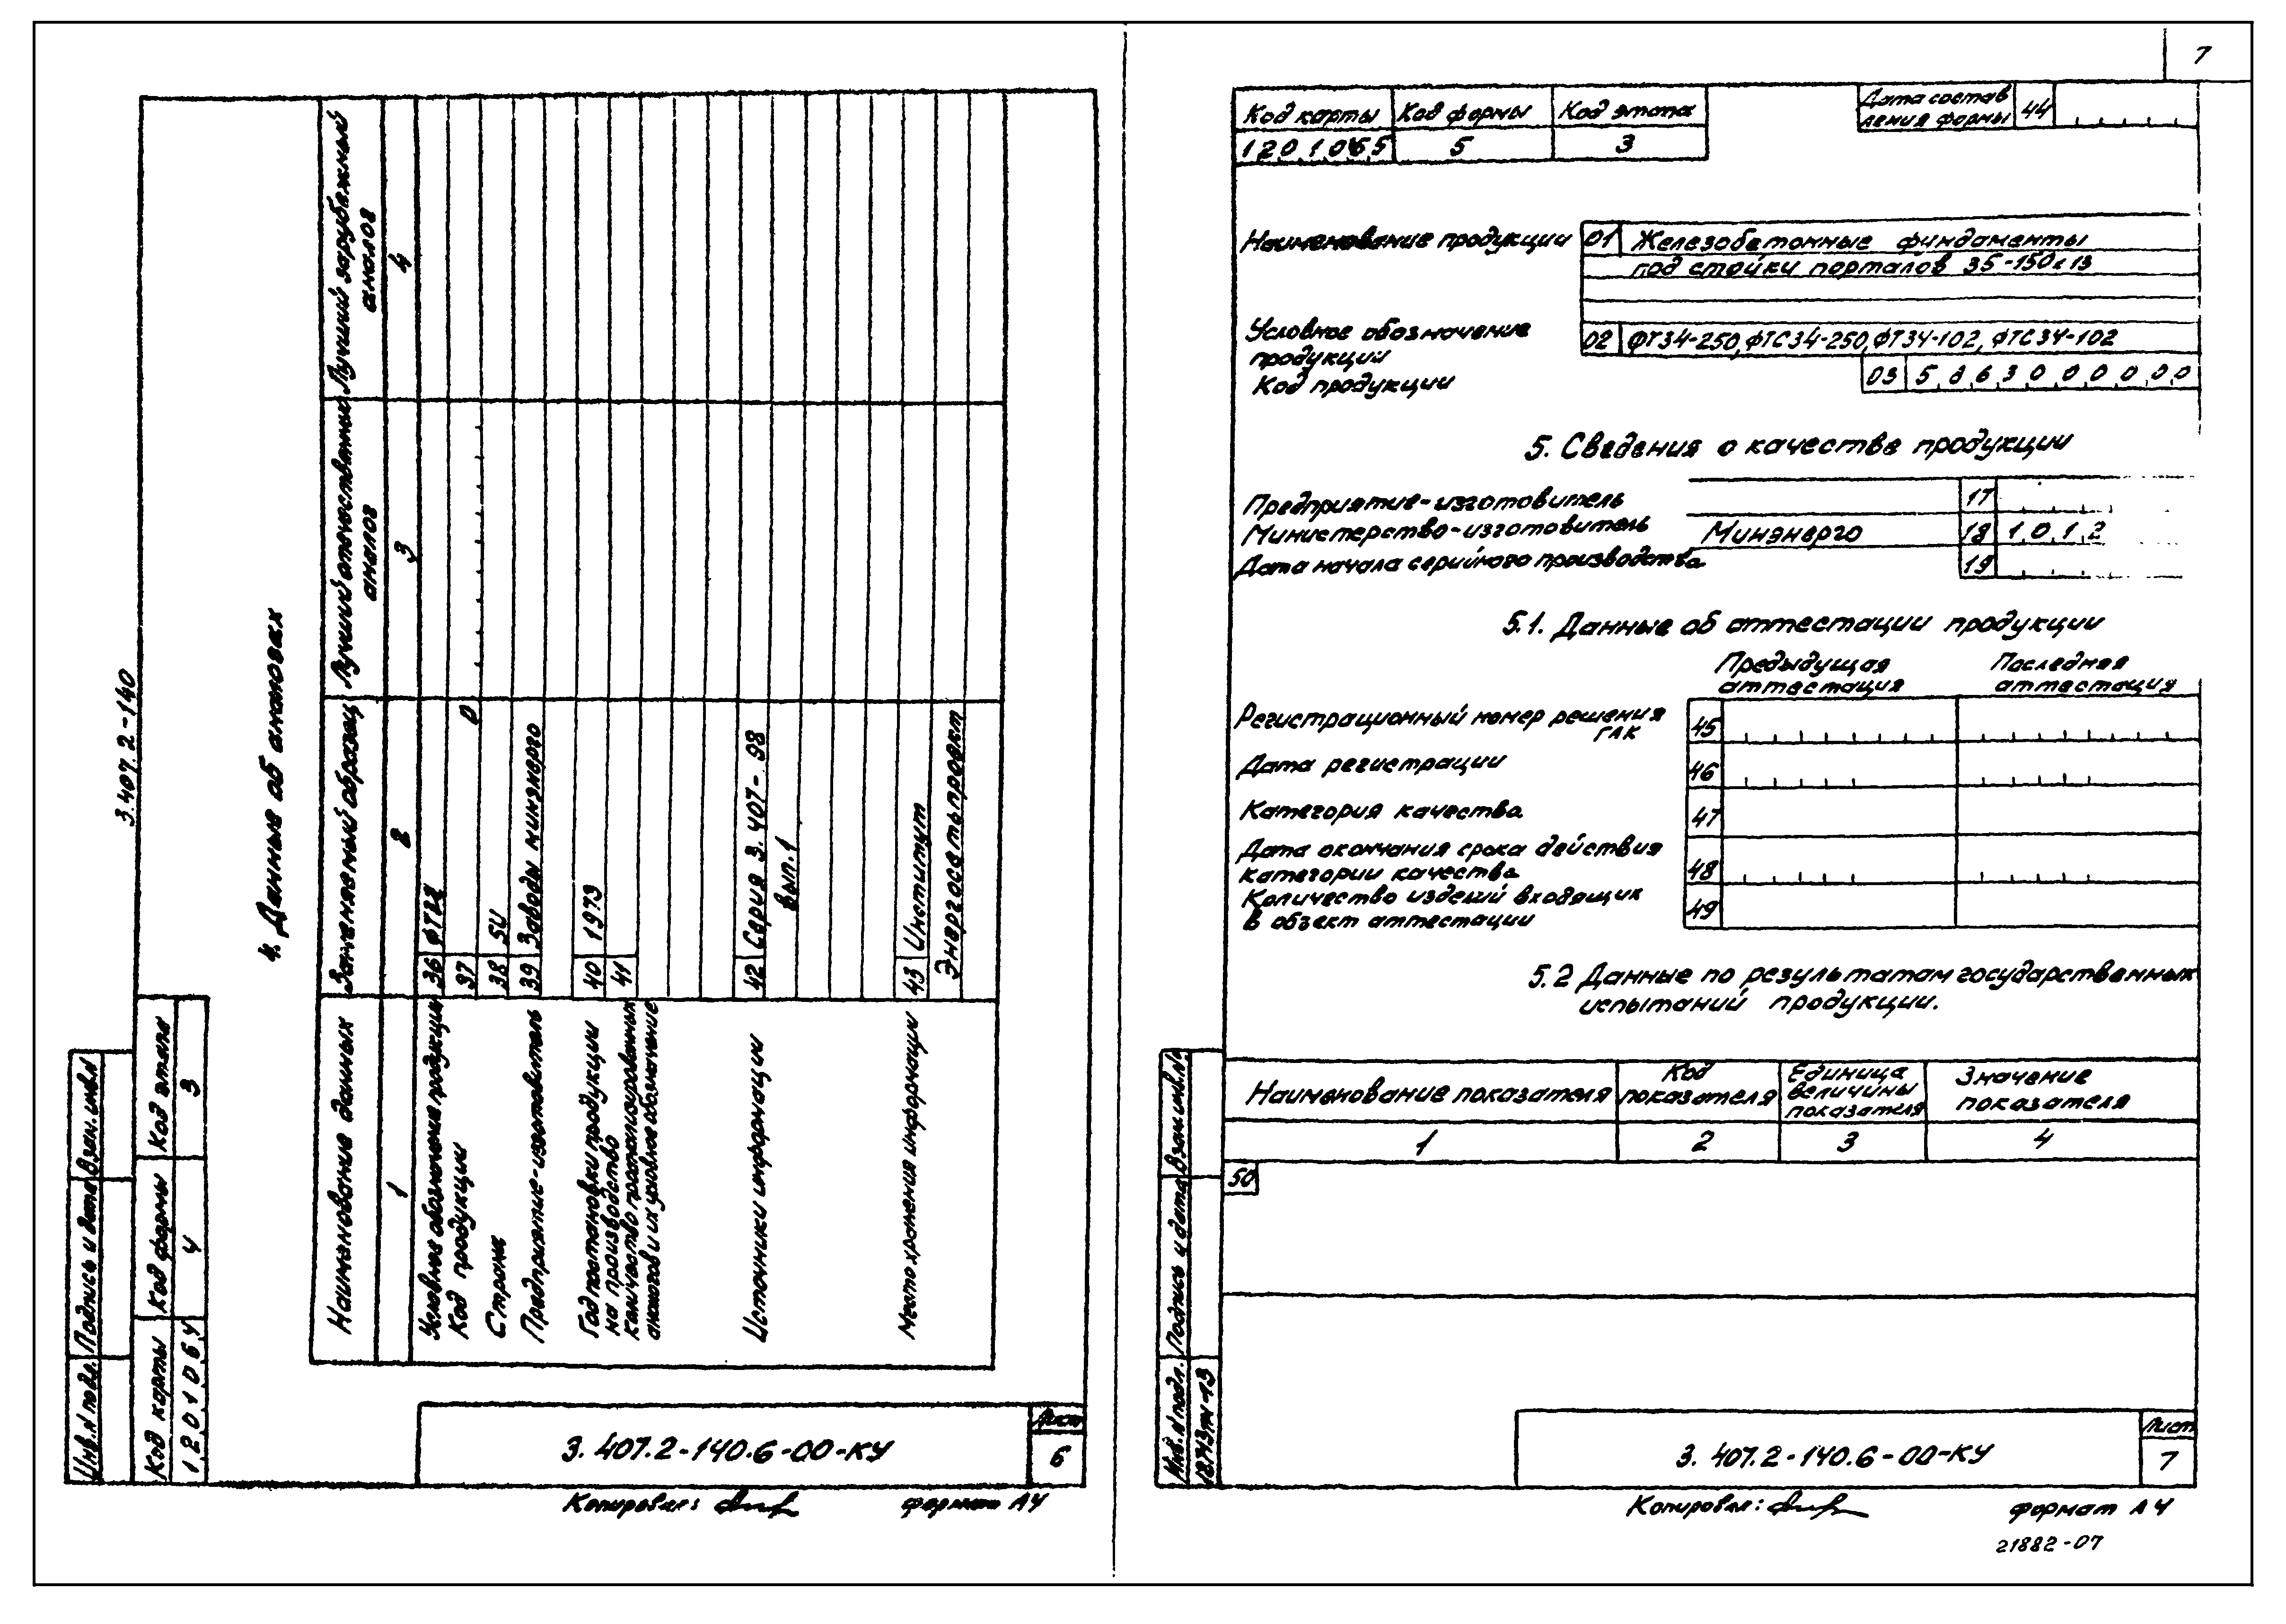 7
3.407.2-140
4. Данные об аналогах
Наименование данных
Заменяемый образец
Лучший отечественный аналог
Лучший зарубежный аналог
1
2
3
4
Условное обозначение продукции
36
Код продукции
37
0
Страна
38
SU
Предприятие-изготовитель
39
Заводы минэнерго
Год постановки продукции
на производство
40
1973
41
аналогов и их условное обозначение
Источники информации
42
Серия 3.407-98
вып.1
Место хранения информации
43
Институт
Энергосетьпроект
Инв.N подл.
Подпись и дата
Взам. инв.N
Код карты
Код формы
Код этапа
1201064
4
3
3.407.2-140.6-00-КУ
Лист
6
Копировал:
формат А4
Код карты
Код формы
Код этапа
1201065
5
3
Дата состав
ления формы
44
Наименование продукции
01
Железобетонные фундаменты
под стойки порталов 35-150кВ
Условное обозначение
продукции
02
ФТ34-250, ФТС34-250, ФТ34-102, ФТС34-102
Код продукции
03
5863000000
5. Сведения о качестве продукции
Предприятие-изготовитель
17
Министерство-изготовитель
Минэнерго
18
1012
Дата начала серийного производства
19
5.1. Данные об аттестации продукции
Предыдущая
аттестация
Последняя
аттестация
Регистрационный номер решения
ГАК
45
Дата регистрации
46
Категория качества
47
Дата окончания срока действия
категории качества
48
Количество изделий входящих
в объект аттестации
49
5.2 Данные по результатам государственных
испытаний продукции.
Наименование показателя
Код
показателя
Единица
величины
показателя
Значение
показателя
1
2
3
4
50
Инв.N подл.
Подпись и дата
Взам инв.N
3.407.2-140.6-00-КУ
Лист
7
Копировал:
формат А4
21882-07